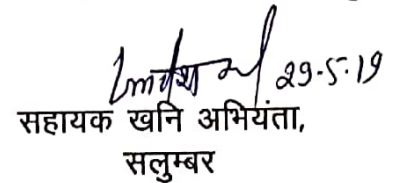 29-5-19
सहायक खनि अभियंता,
सलुम्बर